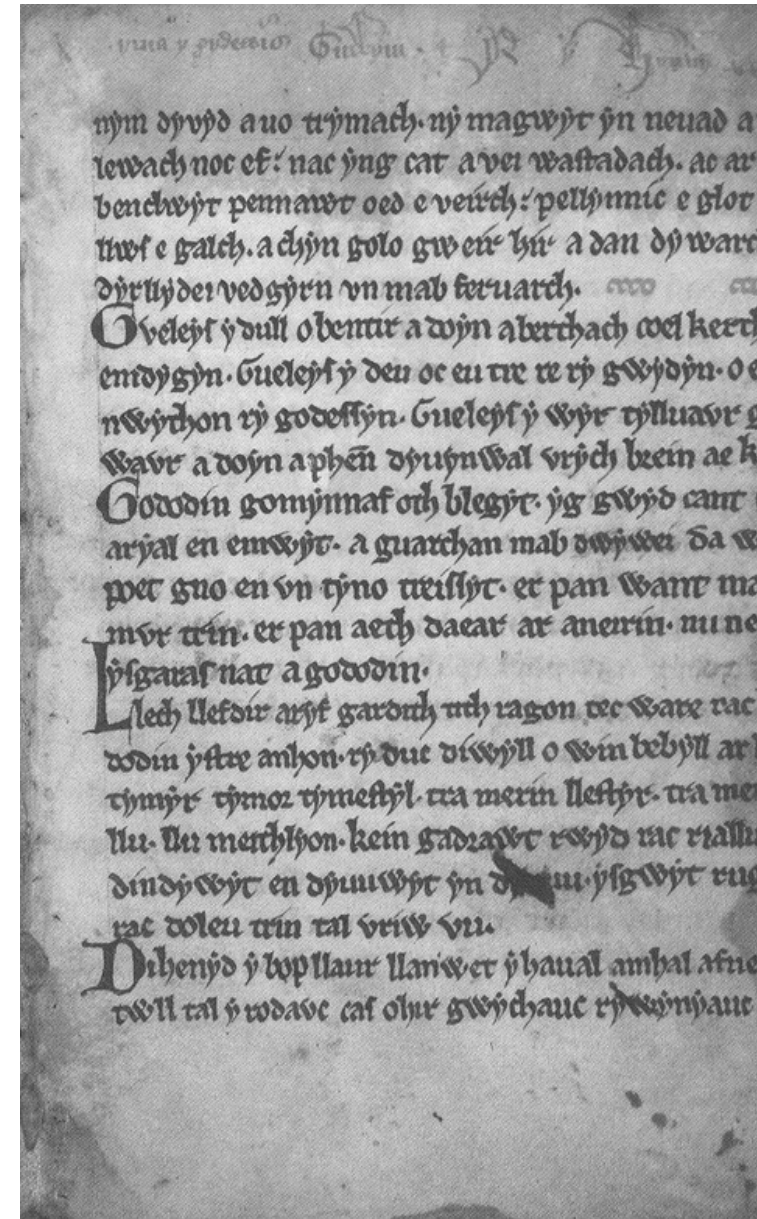 Guilym
nym dyvyd a uo trymach. ny magwyt yn neuad a
lewach noc ef: nac yng cat a vei wastadach. ac ar
benclwyt pennawt oed e veirch: pellynnic e glot
llws e galch. a chyn golo gweir hir a dan dywarc
dyrllydei ved gyrn vn mab feruarch.
Gveleys y dull o bentir a doyn aberthach coel kerth
emdygyn. Gueleys y deu oc eu tre re ry gwydyn. o e
nwython ry godessyn. Gueleys y wyr tylluavr g
wavr a doyn a phen̄ dyuynwal vrych brein ae k
Gododin gomynnaf oth blegyt. yg gwyd cant
aryal en emwyt. a guarchan mab dwywei da w
poet gno en vn tyno treissyt. er pan want ma
mvr trin. er pan aeth daear ar aneirin. nu ne
ysgaras nat a gododin.
Llech llefdir aryf gardith tith ragon tec ware rac
dodin ystre anhon. ry duc diwyll o win bebyll ar
tymyr tymor tymestyl. tra merin llestyr. tra mer
llu. llu meithlyon. kein gadrawt rwyd rac riallu
dindywyt en dyuuwyt yn ysgwyt rug
rac doleu trin tal vriw vu.
Dihenyd y bop llaur llanwet y haual amhal afne
twll tal y rodavc cas ohir gwychauc rywynyauc